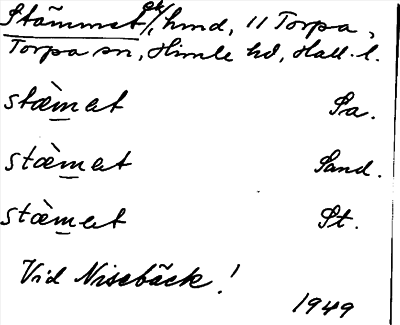 Stämmet ok/, hmd, 11 Torpa,
Torpa sn, Himle hd, Hall. l.
stæ̀m̲et Sa.
stæ̀m̲et Sand.
stæ̀m̲et St.
Vid Nisebäck!
1949